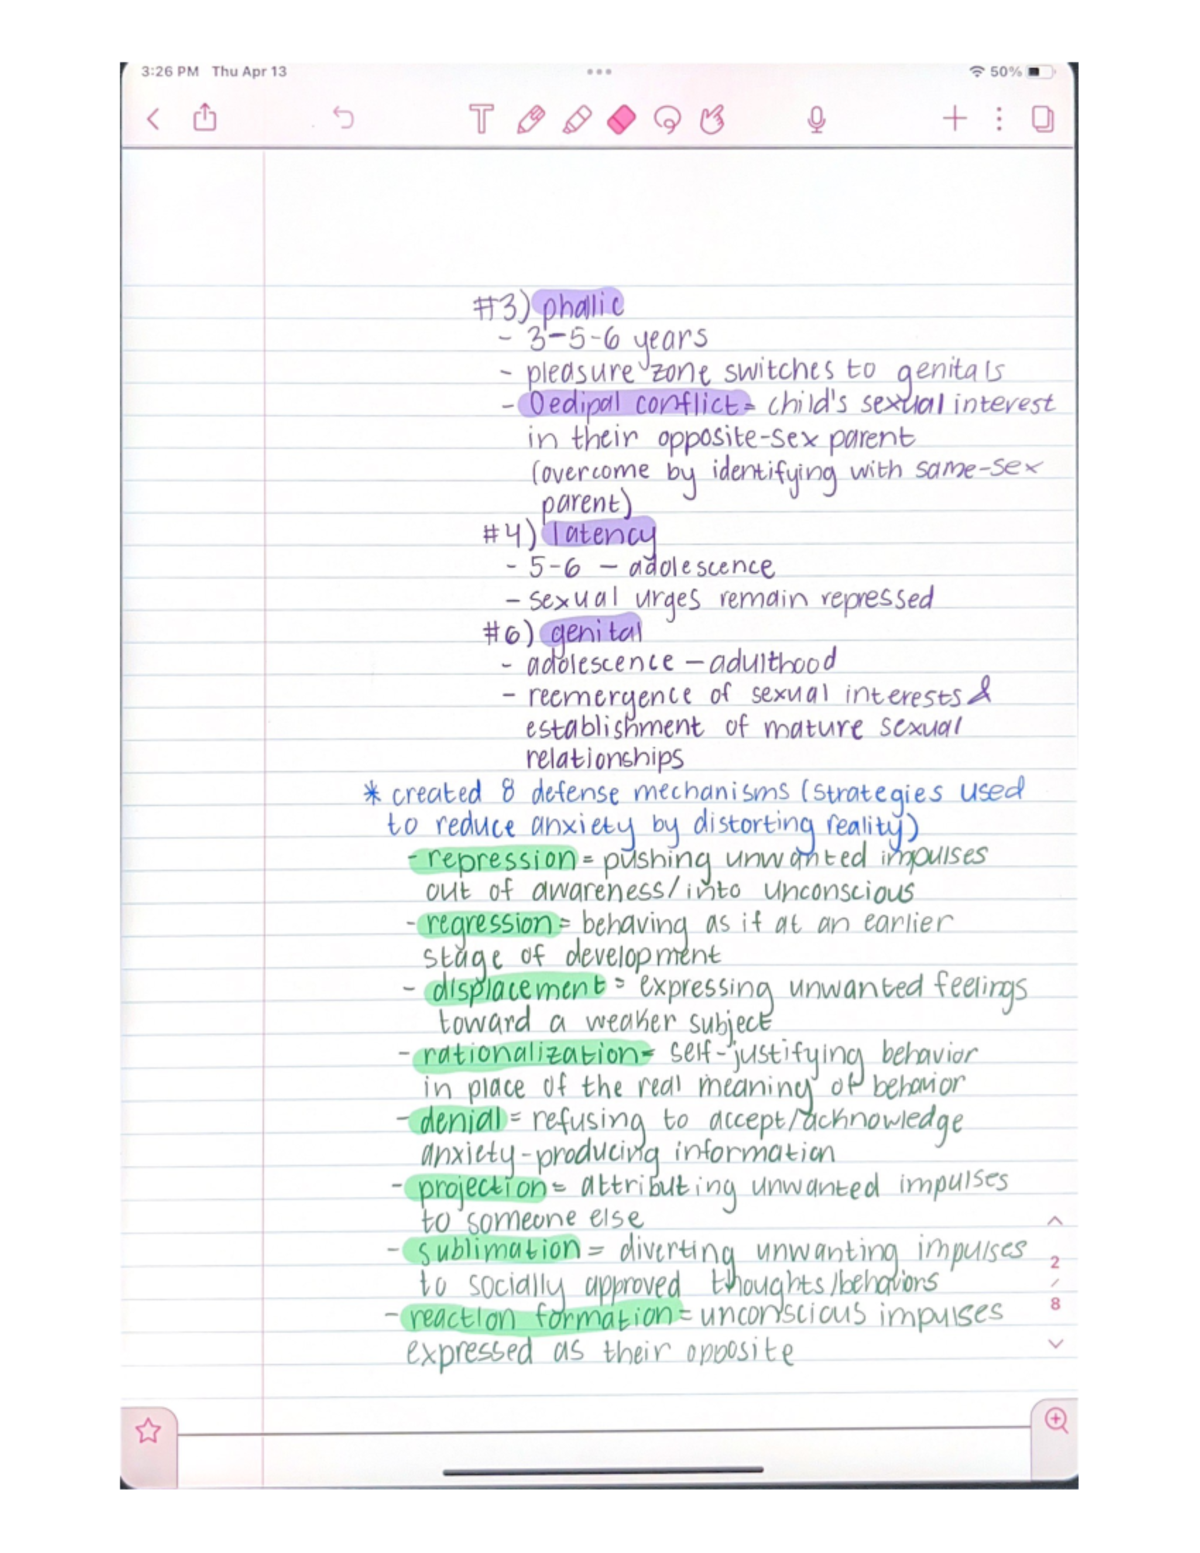 3:26 PM Thu Apr 13
50%
T
#3) phallic
- 3-5-6 years
- pleasure zone switches to genitals
- Oedipal conflict = child's sexual interest
in their opposite-sex parent
(overcome by identifying with same-sex
parent)
#4) latency
- 5-6 — adolescence
- sexual urges remain repressed
#6) genital
- adolescence — adulthood
- reemergence of sexual interests &
establishment of mature sexual
relationships
* created 8 defense mechanisms (strategies used
to reduce anxiety by distorting reality)
- repression = pushing unwanted impulses
out of awareness/into unconscious
- regression = behaving as if at an earlier
stage of development
- displacement = expressing unwanted feelings
toward a weaker subject
- rationalization = self-justifying behavior
in place of the real meaning of behavior
- denial = refusing to accept/acknowledge
anxiety-producing information
- projection = attributing unwanted impulses
to someone else
- sublimation = diverting unwanting impulses
to socially approved thoughts/behaviors
- reaction formation = unconscious impulses
expressed as their opposite
2
/
8